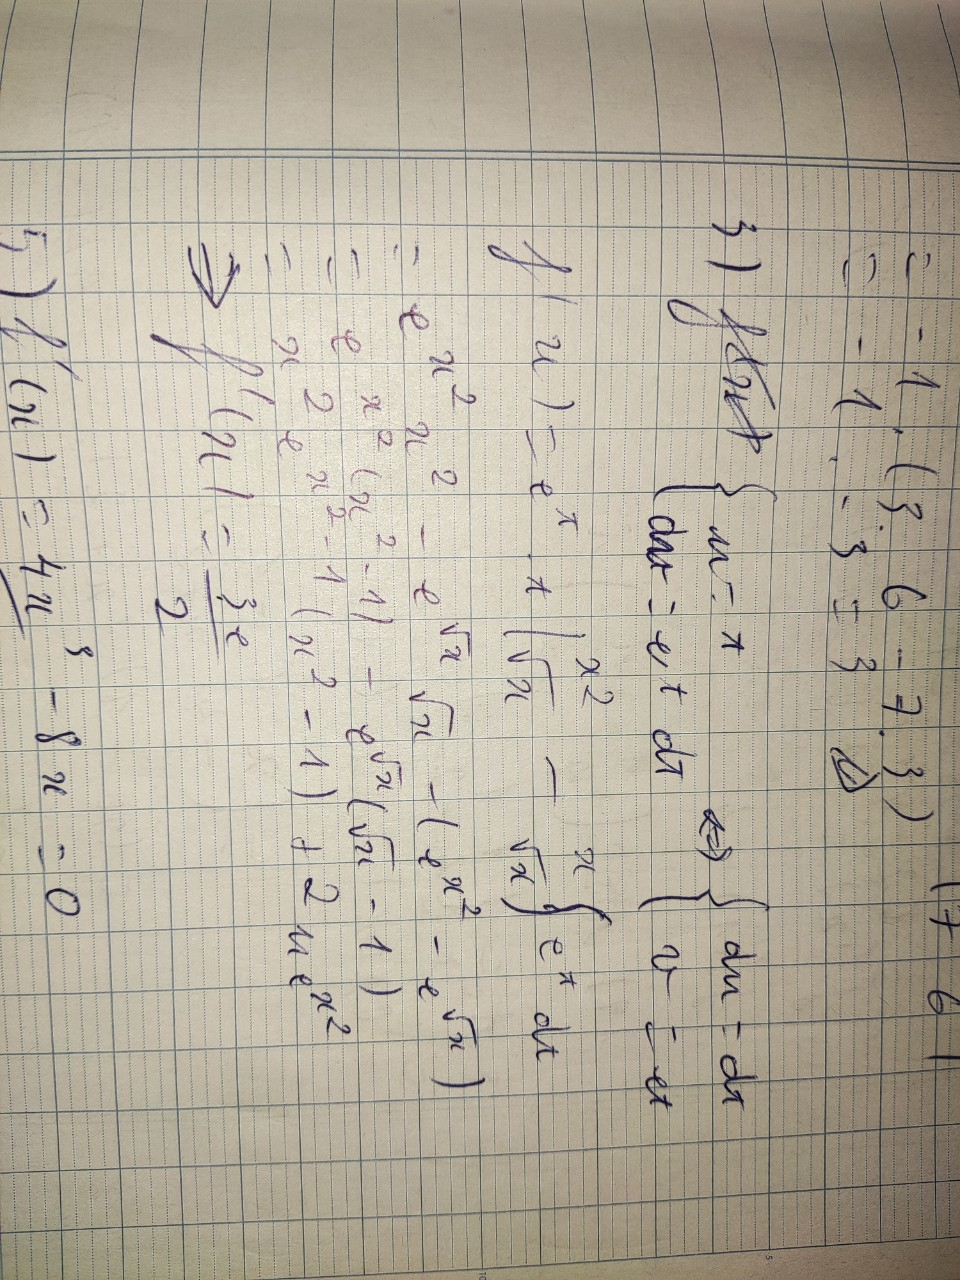 (7 6)
= -1. (3. 6 - 7. 3)
= -1. -3 = 3
3)
{ u = t ⇔ { du = dt
{ dv = e^t dt { v = e^t
f(x) = e^t . t |_{√x}^{x²} - ∫_{√x}^{x} e^t dt
= e^{x²} x² - e^{√x} √x - (e^{x²} - e^{√x})
= e^{x²} (x² - 1) - e^{√x} (√x - 1)
= x 2 e^{x²-1} (x² - 1) + 2 x e^{x²}
⇒ f'(x) = 3e/2
5) f'(x) = 4x³ - 8x = 0